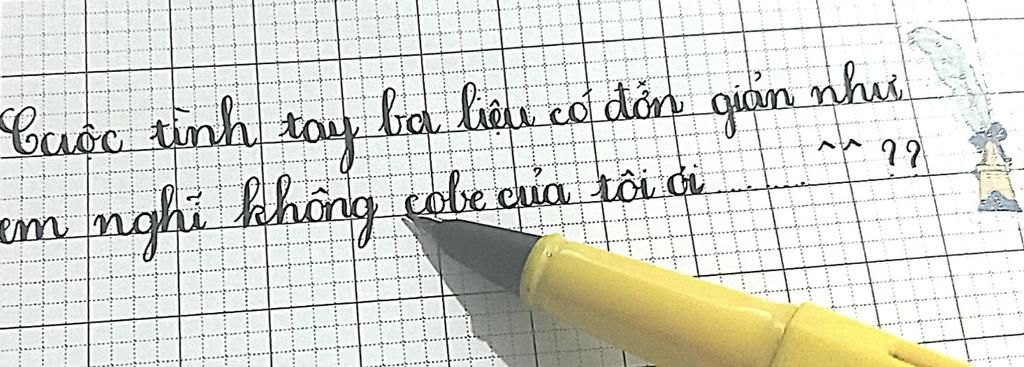 Cuộc tình tay ba liệu có đơn giản như
em nghĩ không cobe của tôi ơi ........ ^^ ??